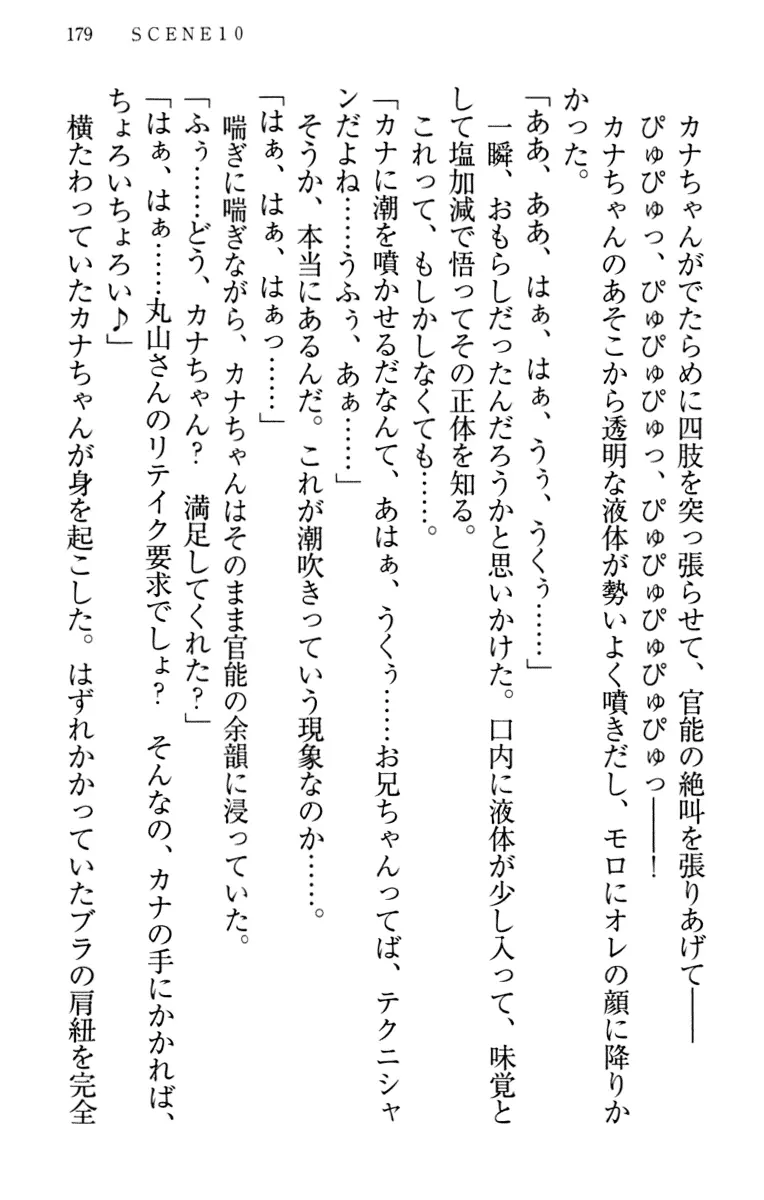 179 SCENE10
カナちゃんがでたらめに四肢を突っ張らせて、官能の絶叫を張りあげて――
ぴゅぴゅっ、ぴゅぴゅぴゅっ、ぴゅぴゅぴゅぴゅっ――！
カナちゃんのあそこから透明な液体が勢いよく噴きだし、モロにオレの顔に降りか
かった。
「ああ、ああ、はぁ、はぁ、うぅ、うくぅ……」
一瞬、おもらしだったんだろうかと思いかけた。口内に液体が少し入って、味覚と
して塩加減で悟ってその正体を知る。
これって、もしかしなくても……。
「カナに潮を噴かせるだなんて、あはぁ、うくぅ……お兄ちゃんってば、テクニシャ
ンだよね……うふぅ、あぁ……」
そうか、本当にあるんだ。これが潮吹きっていう現象なのか……。
「はぁ、はぁ、はぁっ……」
喘ぎに喘ぎながら、カナちゃんはそのまま官能の余韻に浸っていた。
「ふぅ……どう、カナちゃん？　満足してくれた？」
「はぁ、はぁ……丸山さんのリテイク要求でしょ？　そんなの、カナの手にかかれば、
ちょろいちょろい♪」
横たわっていたカナちゃんが身を起こした。はずれかかっていたブラの肩紐を完全